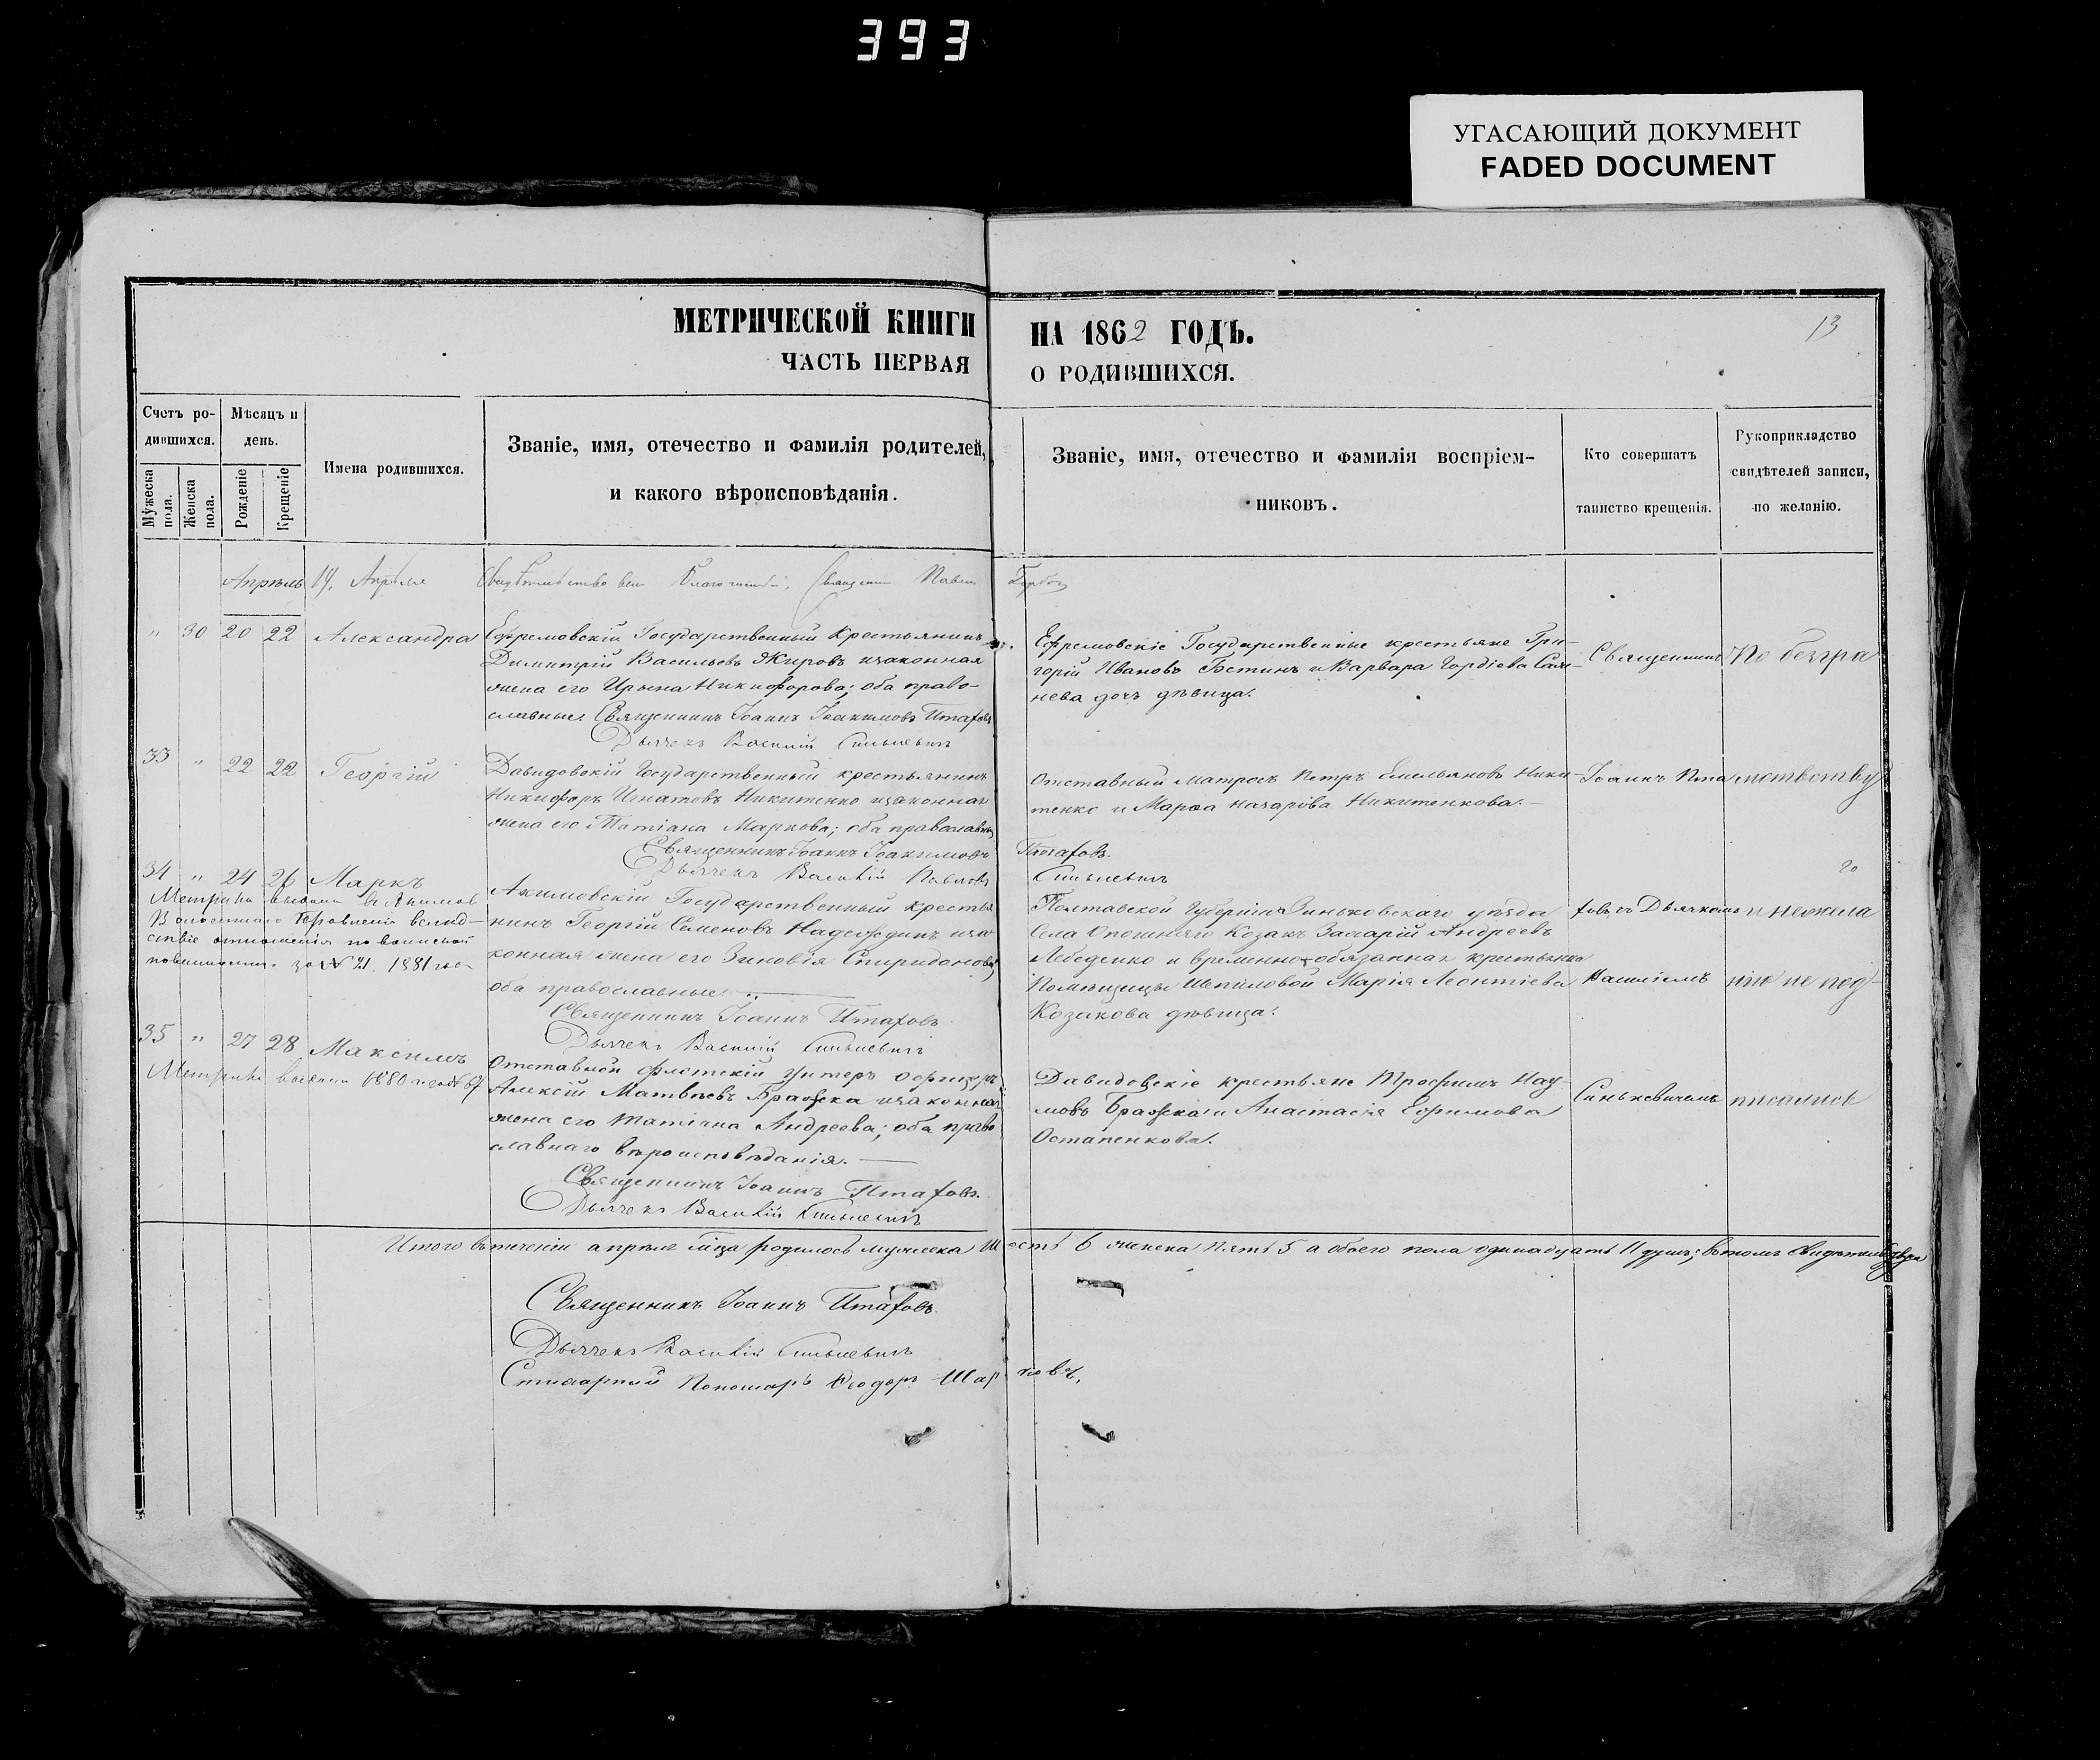 393
УГАСАЮЩИЙ ДОКУМЕНТ
FADED DOCUMENT
МЕТРИЧЕСКОЙ КНИГИ НА 1862 ГОДЪ.
13
ЧАСТЬ ПЕРВАЯ О РОДИВШИХСЯ.
Счетъ ро-
дившихся.
Мужеска пола.
Женска пола.
Мѣсяцъ и
день.
Рожденіе
Крещеніе
Имена родившихся.
Званіе, имя, отечество и фамилія родителей,
и какого вѣроисповѣданія.
Званіе, имя, отечество и фамилія воспріем-
никовъ.
Кто совершатъ
таинство крещенія.
Рукоприкладство
свидѣтелей записи,
по желанію.
Апрѣль
19, Апрѣля Павелъ
" 30 20 22 Александра
Ефремовскій Государственный Крестьянинъ
Димитрій Васильевъ Жировъ изаконная
жена его Ирына Никифорова; оба право-
славные. Священникъ Іоаннъ Іоакимовъ Птаховъ
Дьячекъ Василій Синькевичъ
Ефремовскіе Государственные крестьяне Гри-
горій Ивановъ Гостинъ и Варвара Гордіева
нева дочъ дѣвица.
Священникъ
По безгра
33 " 22 22 Георгій
Давидовскій Государственный крестьянинъ
Никифоръ Игнатовъ Никитенко изаконная
жена его Татіана Маркова; оба православны
Священникъ Іоаннъ Іоакимовъ Птаховъ.
Дьячекъ Василій Павловъ Синькевичъ
Отставный матросъ Петръ Емельяновъ Ники-
тенко и Марѳа Назарова Никитенкова.
Іоаннъ Пта
мотвству
20
34 " 24 26 Маркъ
Метрика выдана въ Акимов
Волостного Правленія вслѣд-
ствіе отношенія по воинской
повинности. за № 21. 1881 го
Акимовскій Государственный крестья
нинъ Георгій Семеновъ Надеждинъ иза
конная жена его Зиновія Спиридонова
оба православные.
Священникъ Іоаннъ Птаховъ
Дьячекъ Василій Синькевичъ
Полтавской Губерніи Зиньковскаго уѣзда
Села Опошняго Козакъ Захарій Андреевъ
Лебеденко и временно-обязанная крестьянка
Помѣщицы Марія Леонтіева
Козакова дѣвица.
ховъ съ Дьячкомъ
Василіемъ
и нежела
нію не под-
35 " 27 28 Максимъ
Метрика выдана 1880 года № 67
Отставной флотскій Унтеръ офицеръ
Алексій Матвѣевъ Бражка изаконная
жена его Татіана Андреева; оба право
славнаго вѣроисповѣданія.
Священникъ Іоаннъ Птаховъ.
Дьячекъ Василій Синькевичъ
Давидовскіе крестьяне Трофимъ Нау-
мовъ Бражка и Анастасія Ефимова
Остапенкова.
Синькевичемъ
писались
Итого въ теченіи апрѣля мѣца родилось мужеска шесть 6 женска пять 5 а обоего пола одинадцать 11 душъ; въ томъ
Священникъ Іоаннъ Птаховъ.
Дьячекъ Василій Синькевичъ
Стихарный Пономарь Ѳеодоръ Шарковъ.